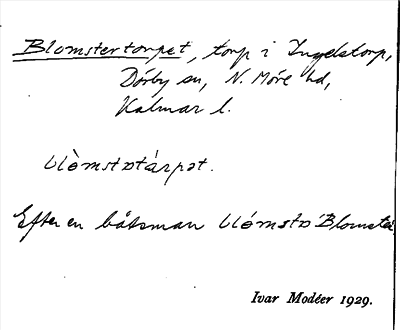 Blomstertorpet, torp i Ingelstorp,
Dörby sn, N. Möre hd,
Kalmar l.
blòmstətárpət.
Efter en båtsman blómstə Blomster
Ivar Modéer 1929.